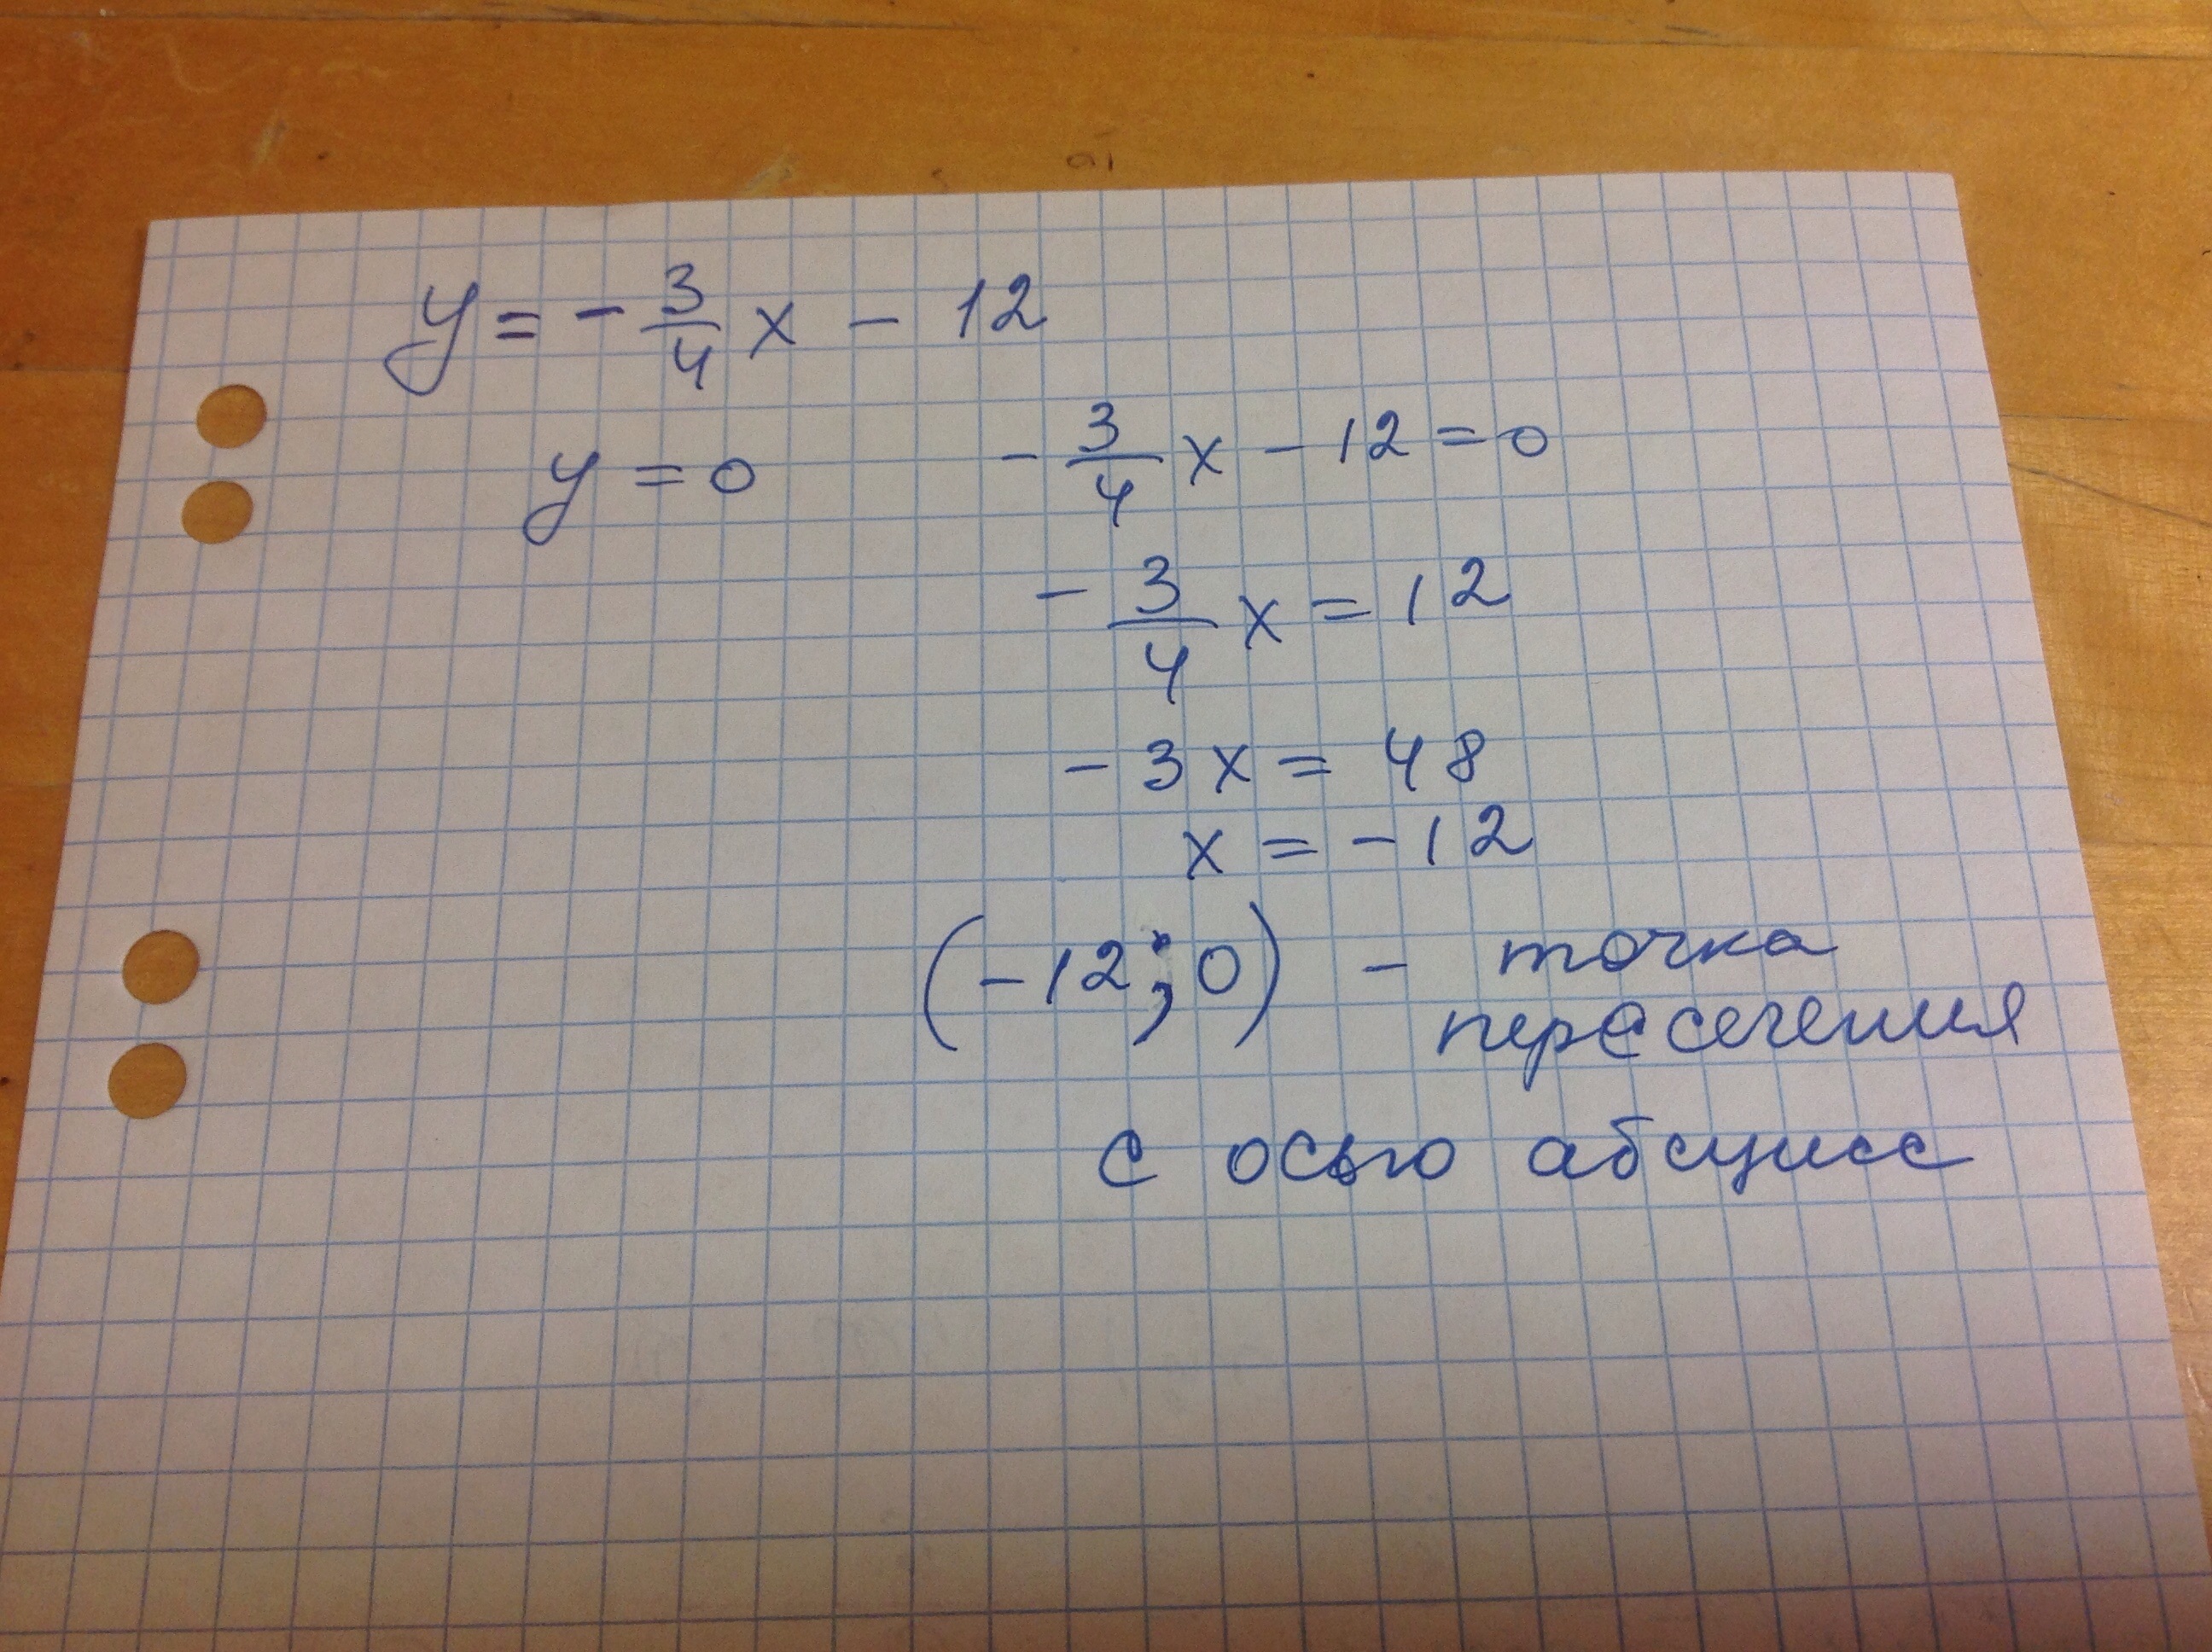 y = - 3/4 x - 12
y = 0
- 3/4 x - 12 = 0
- 3/4 x = 12
- 3x = 48
x = -12
(-12; 0) - точка
пересечения
с осью абсцисс